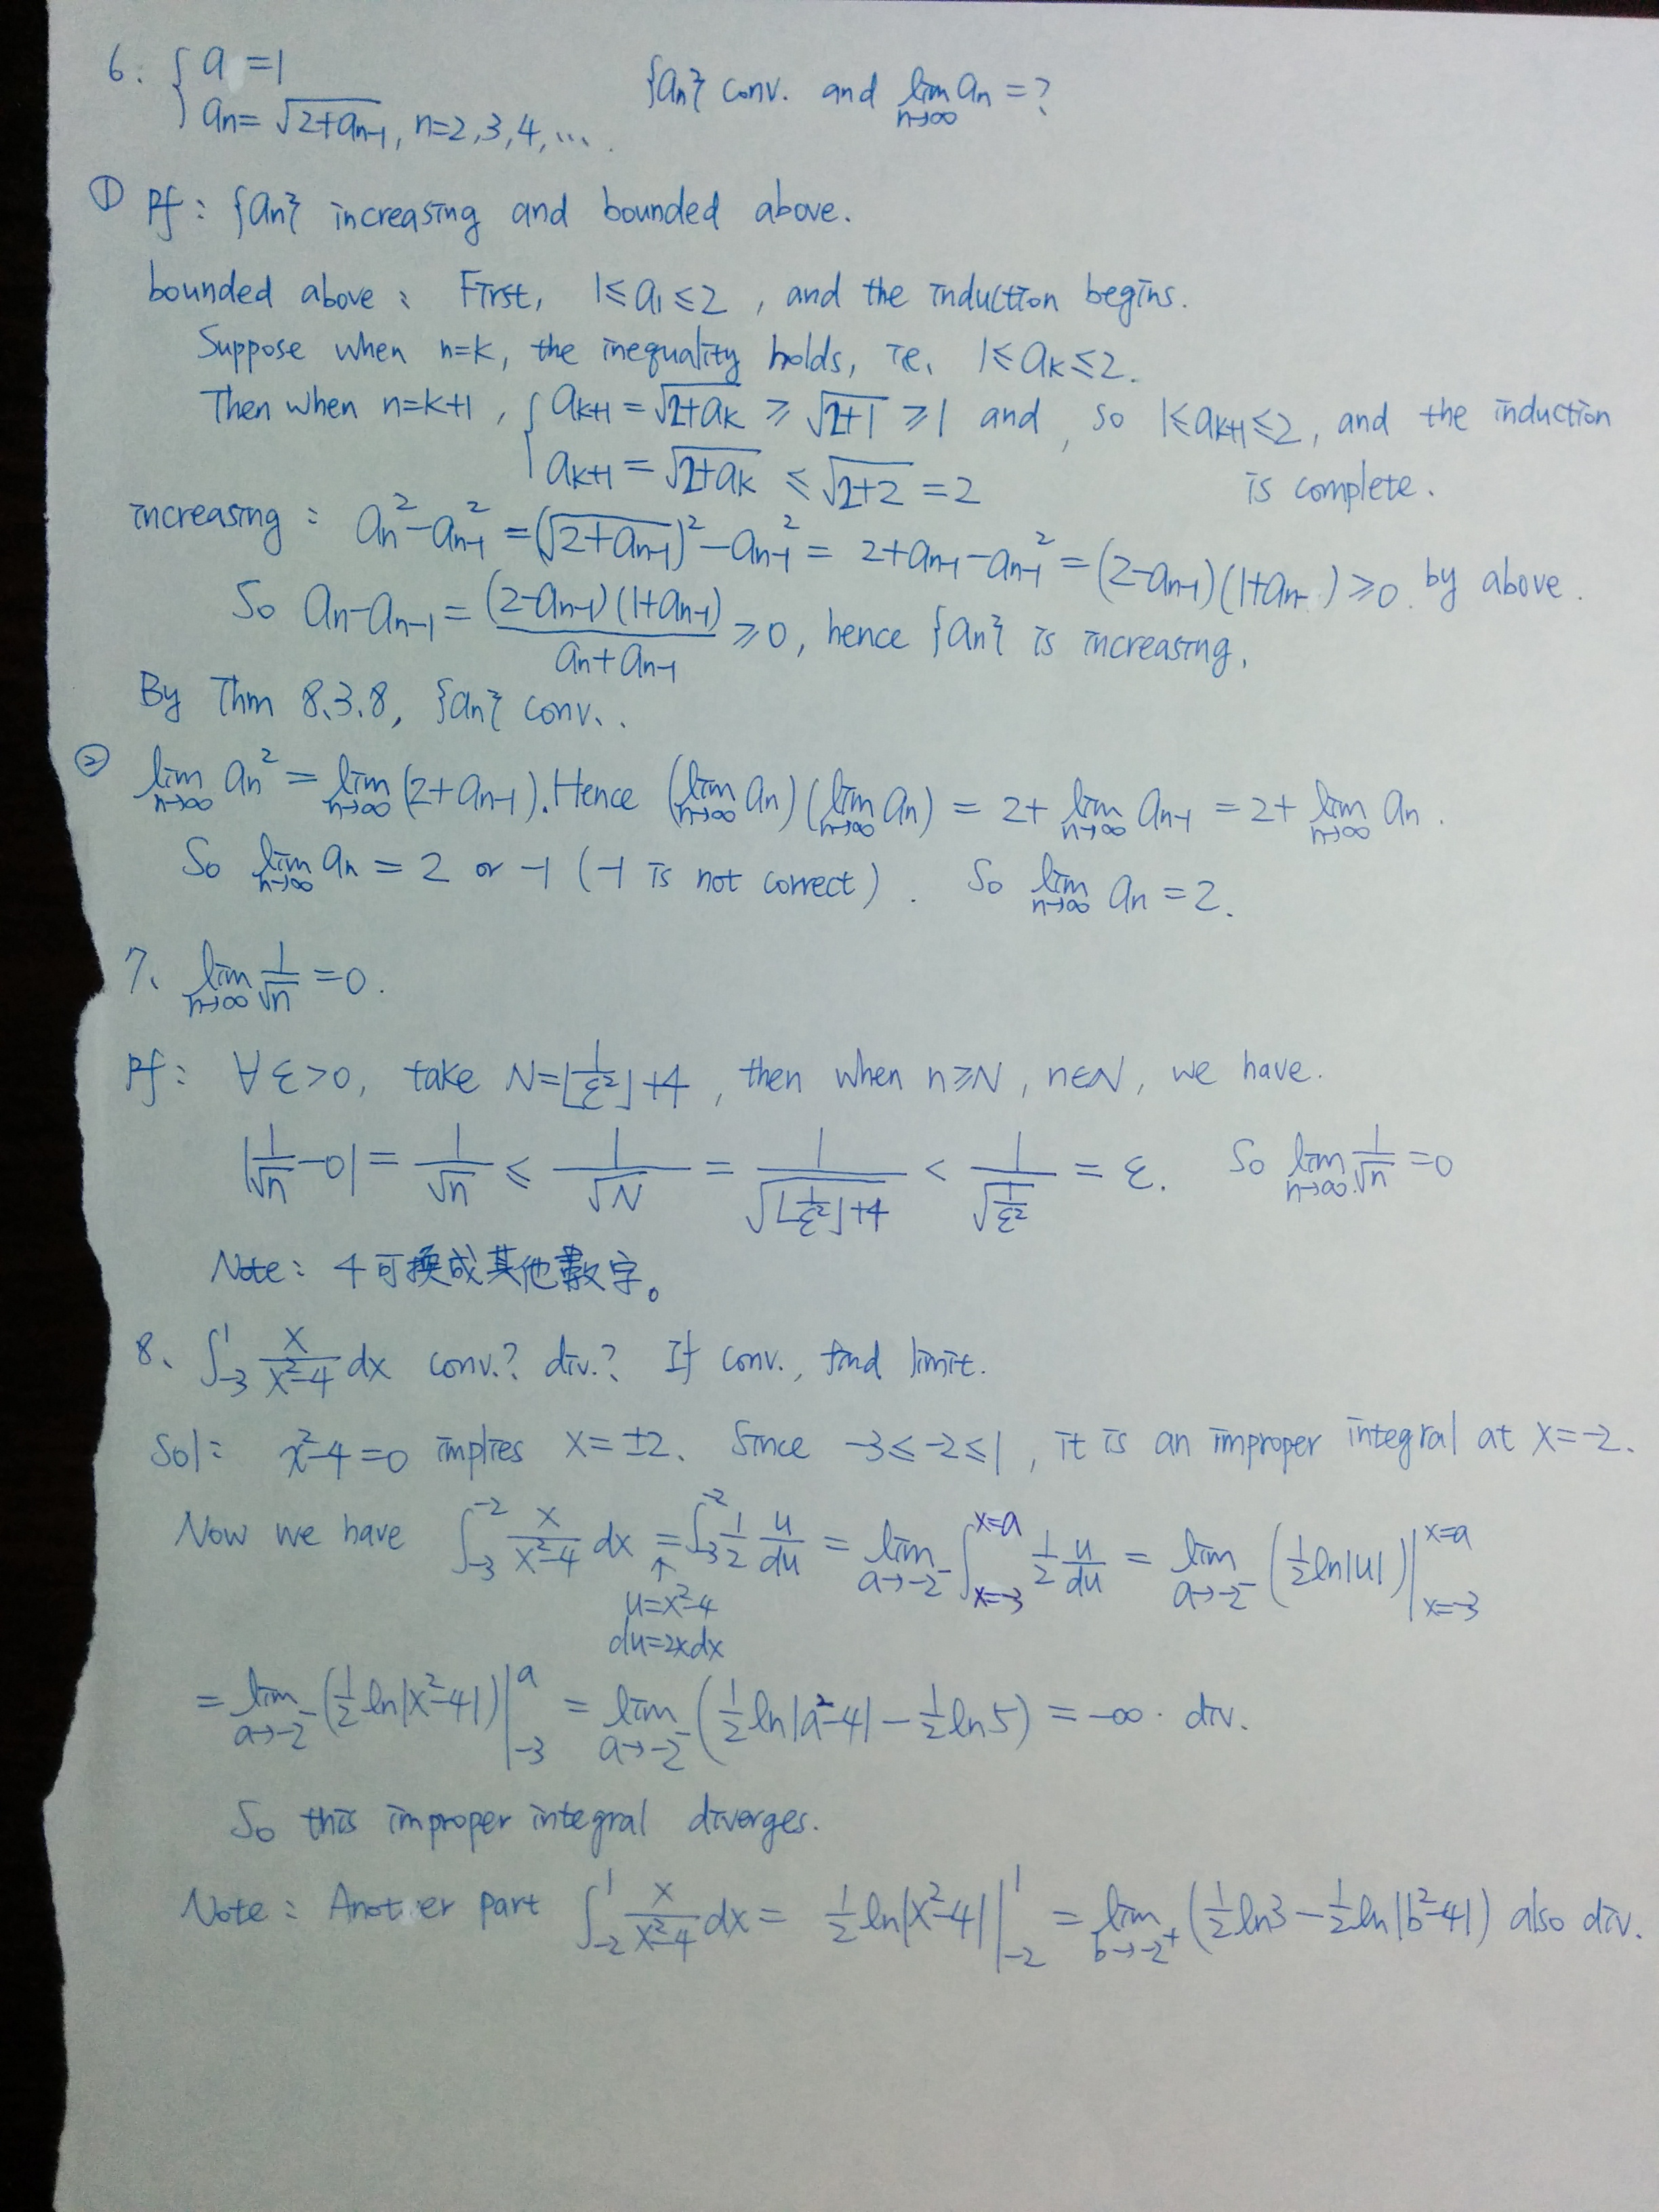 6. { a =1
a_n = √(2+a_{n-1}), n=2,3,4,… .
{a_n} conv. and lim_{n→∞} a_n = ?
① pf: {a_n} increasing and bounded above.
bounded above: First, 1≤a_1≤2, and the induction begins.
Suppose when n=k, the inequality holds, ie. 1≤a_k≤2.
Then when n=k+1, { a_{k+1} = √(2+a_k) ≥ √(2+1) ≥ 1 and , so 1≤a_{k+1}≤2, and the induction
a_{k+1} = √(2+a_k) ≤ √(2+2) = 2 is complete.
increasing: a_n^2 - a_{n-1}^2 = (√(2+a_{n-1}))^2 - a_{n-1}^2 = 2+a_{n-1}-a_{n-1}^2 = (2-a_{n-1})(1+a_{n-}) ≥0 by above.
So a_n - a_{n-1} = (2-a_{n-1})(1+a_{n-1}) / (a_n+a_{n-1}) ≥0, hence {a_n} is increasing.
By Thm 8.3.8, {a_n} conv..
② lim_{n→∞} a_n^2 = lim_{n→∞} (2+a_{n-1}). Hence (lim_{n→∞} a_n)(lim_{n→∞} a_n) = 2+ lim_{n→∞} a_{n-1} = 2+ lim_{n→∞} a_n.
So lim_{n→∞} a_n = 2 or -1 (-1 is not correct). So lim_{n→∞} a_n = 2.
7. lim_{n→∞} 1/√n = 0.
pf: ∀ε>0, take N=⌊1/ε²⌋+4, then when n≥N, n∈N, we have.
|1/√n - 0| = 1/√n ≤ 1/√N = 1/√(⌊1/ε²⌋+4) < 1/√(1/ε²) = ε. So lim_{n→∞} 1/√n = 0
Note: 4可換成其他數字。
8. ∫_{-3}^{1} x/(x²-4) dx conv.? div.? If conv., find limit.
Sol: x²-4=0 implies x=±2. Since -3≤-2≤1, it is an improper integral at x=-2.
Now we have ∫_{-3}^{-2} x/(x²-4) dx = ∫_{-3}^{-2} 1/2 u/du = lim_{a→-2^-} ∫_{x=-3}^{x=a} 1/2 u/du = lim_{a→-2^-} (1/2 ln|u|)|_{x=-3}^{x=a}
↑
u=x²-4
du=2xdx
= lim_{a→-2^-} (1/2 ln|x²-4|)|_{-3}^{a} = lim_{a→-2^-} (1/2 ln|a²-4| - 1/2 ln5) = -∞. div.
So this improper integral diverges.
Note: Anot er part ∫_{-2}^{1} x/(x²-4) dx = 1/2 ln|x²-4| |_{-2}^{1} = lim_{b→-2^+} (1/2 ln3 - 1/2 ln|b²-4|) also div.